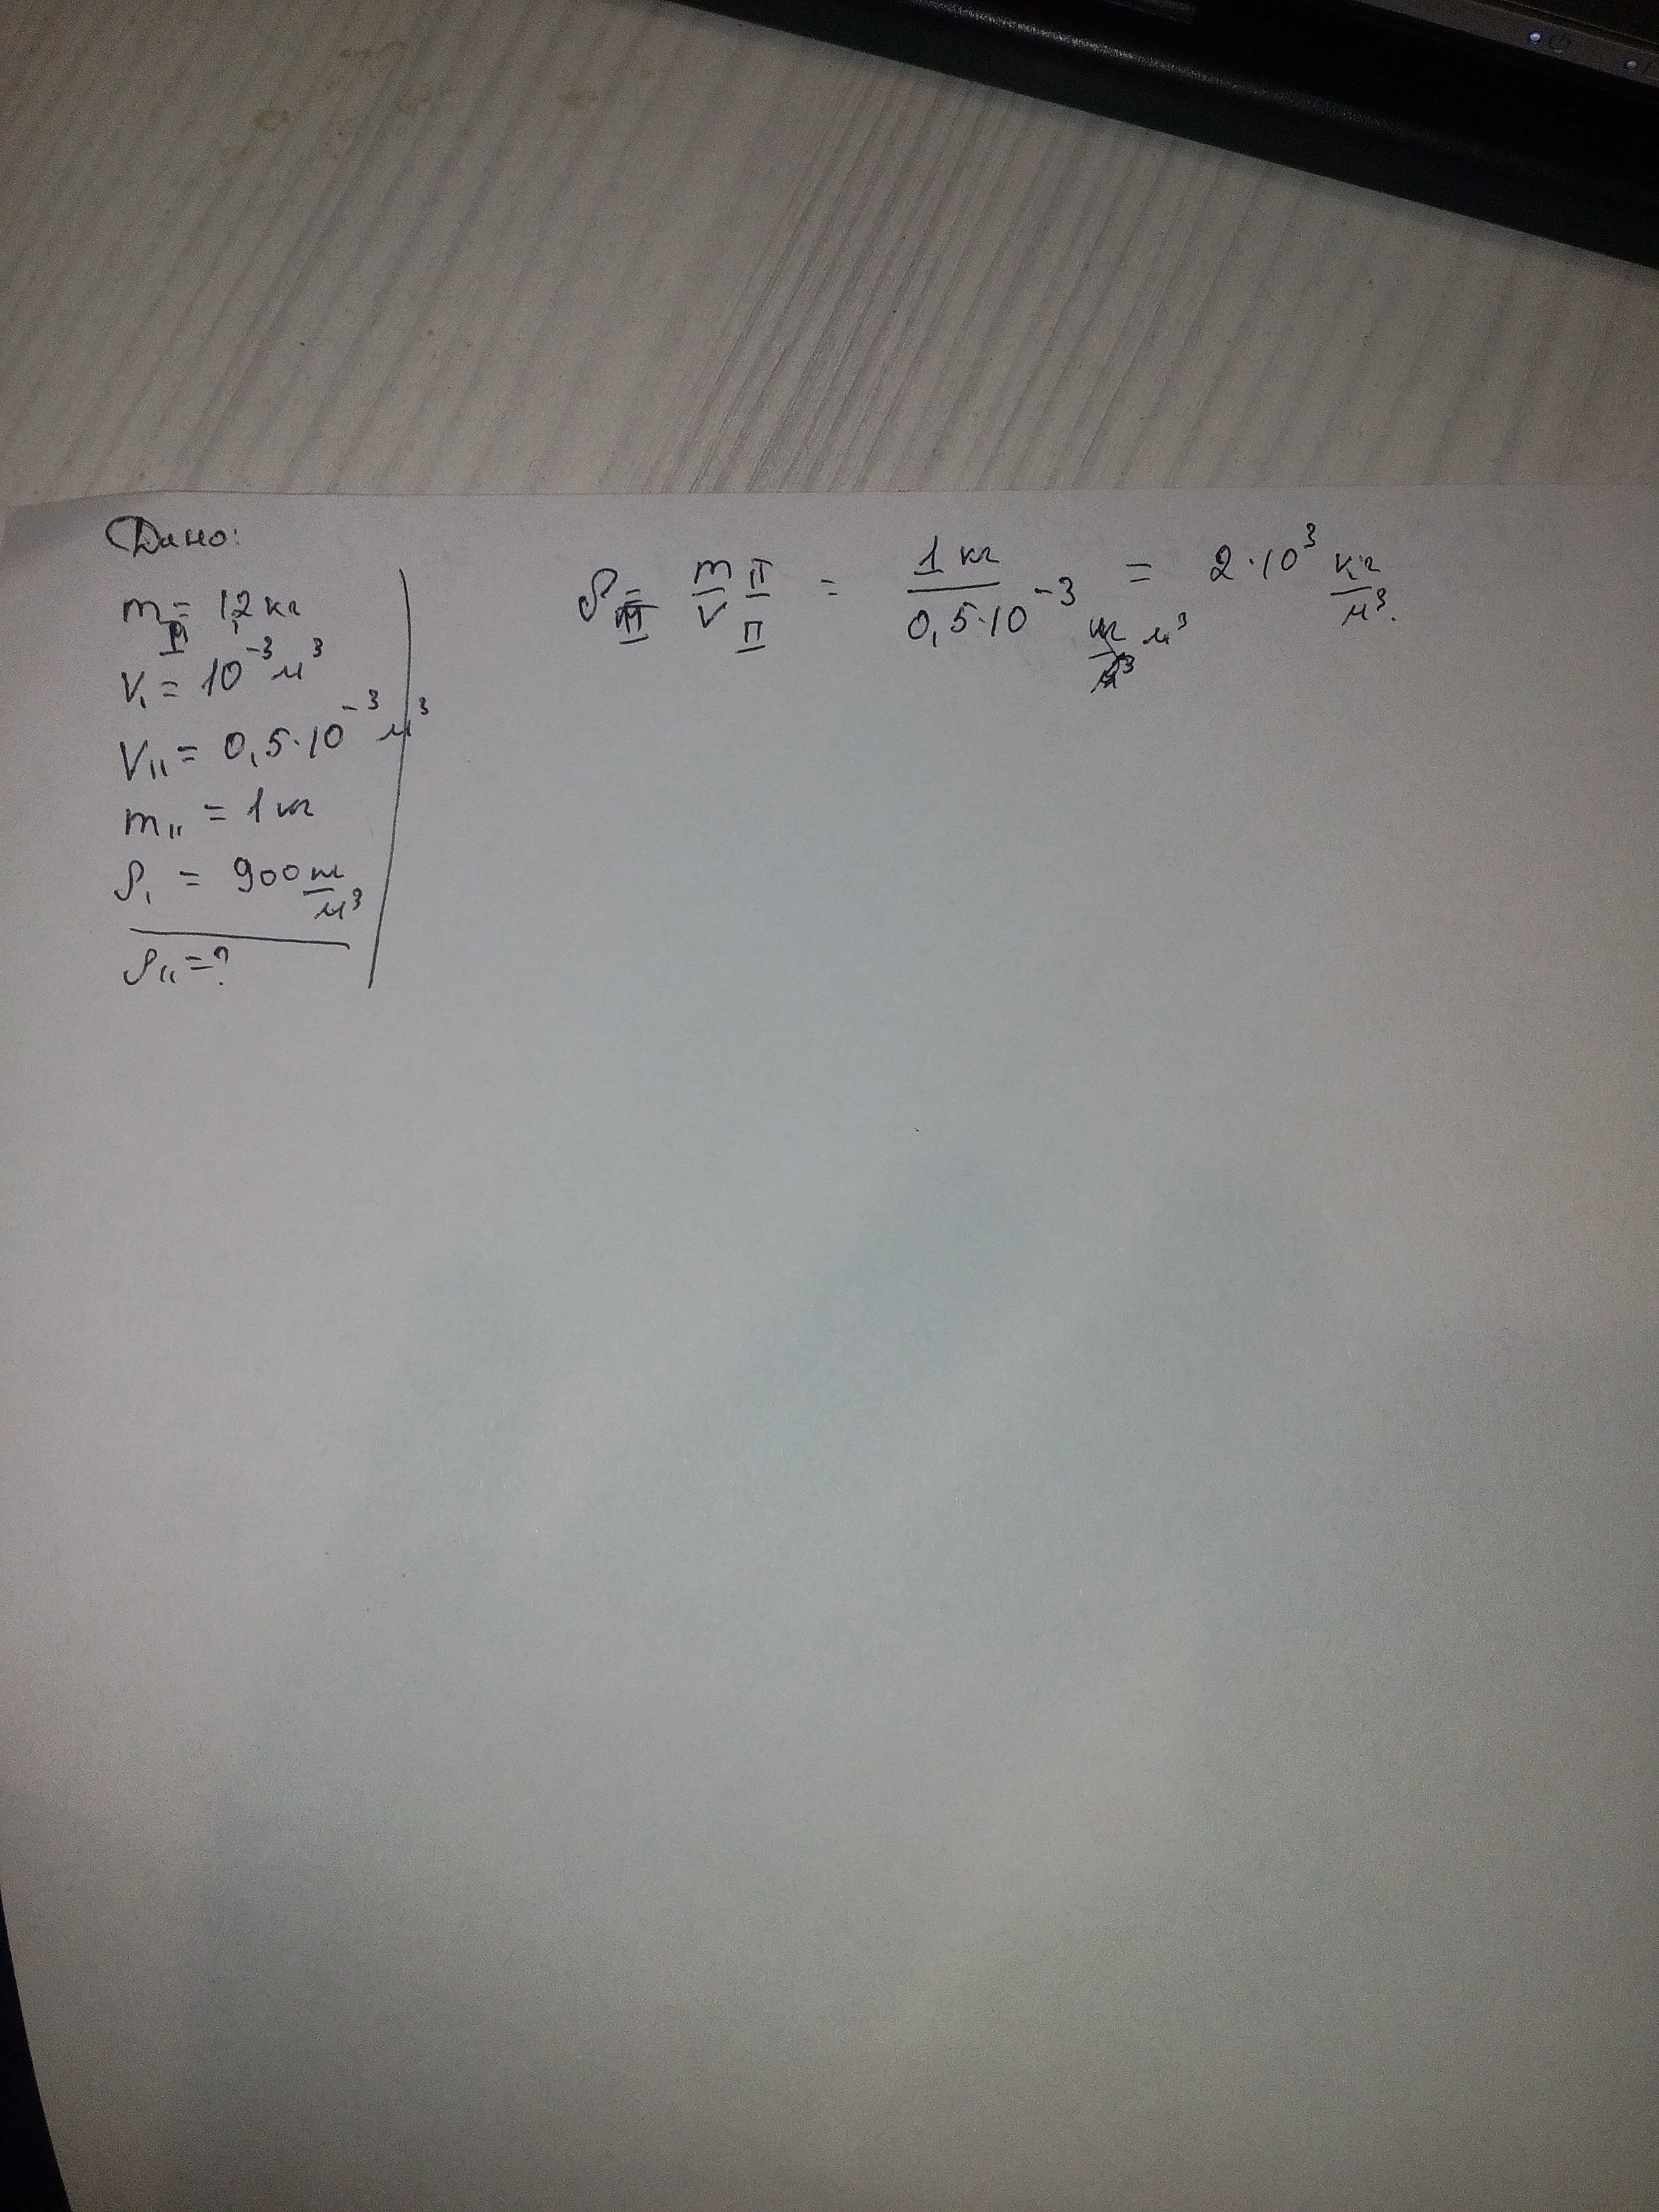 Дано:
m_I = 1,2 кг
V_I = 10^-3 м^3
V_II = 0,5·10^-3 м^3
m_II = 1 кг
ρ_I = 900 кг/м^3
ρ_II = ?
ρ_II = m_II/V_II = 1 кг/0,5·10^-3 м^3 = 2·10^3 кг/м^3.